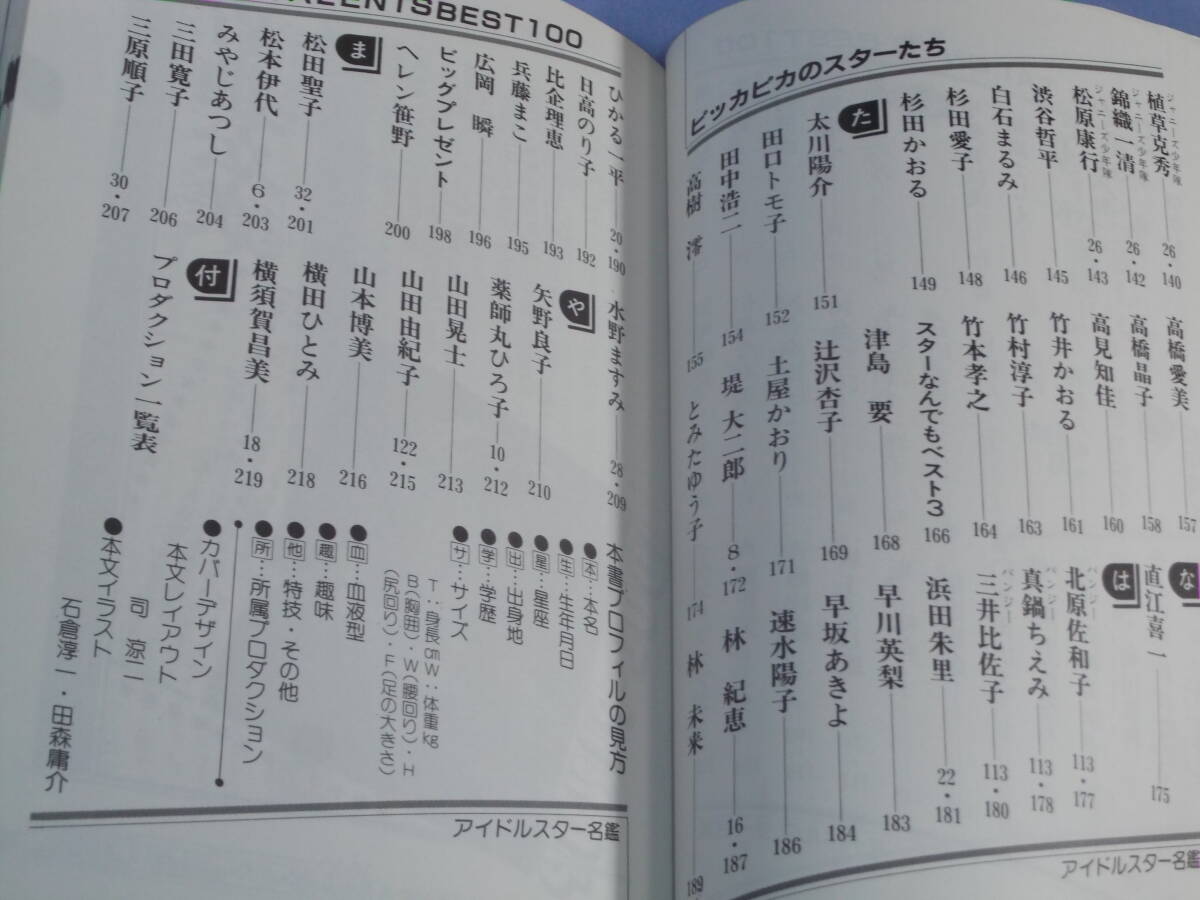 ピッカピカのスターたち
ジャニーズ少年隊
植草克秀 26・140
ジャニーズ少年隊
錦織一清 26・142
ジャニーズ少年隊
松原康行 26・143
渋谷哲平 145
白石まるみ 146
杉田愛子 148
杉田かおる 149
た
太川陽介 151
田口トモ子 152
田中浩二 154
高樹 澪 155
高橋愛美 157
高橋晶子 158
高見知佳 160
竹井かおる 161
竹村淳子 163
竹本孝之 164
スターなんでもベスト3 166
津島 要 168
辻沢杏子 169
土屋かおり 171
堤 大二郎 8・172
とみたゆう子 174
な
直江喜一 175
は
パンジー
北原佐和子 113・177
パンジー
真鍋ちえみ 113・178
パンジー
三井比佐子 113・180
浜田朱里 22・181
早川英梨 183
早坂あきよ 184
速水陽子 186
林 紀恵 16・187
林 未来 189
アイドルスター名鑑
TSBEST100
ひかる一平 20・190
日高のり子 192
比企理恵 193
兵藤まこ 195
広岡 瞬 196
ビッグプレゼント 198
ヘレン笹野 200
ま
松田聖子 32・201
松本伊代 6・203
みやじあつし 204
三田寛子 206
三原順子 30・207
水野ますみ 28・209
や
矢野良子 210
薬師丸ひろ子 10・212
山田晃士 213
山田由紀子 122・215
山本博美 216
横田ひとみ 218
横須賀昌美 18・219
付
プロダクション一覧表
本書プロフィルの見方
●本…本名
●生…生年月日
●星…星座
●出…出身地
●学…学歴
●サ…サイズ
T:身長cm W:体重kg
B(胸囲)・W(腰回り)・H
(尻回り)・F(足の大きさ)
●血…血液型
●趣…趣味
●他…特技・その他
●所…所属プロダクション
●カバーデザイン
本文レイアウト
司 涼二
●本文イラスト
石倉淳一・田森庸介
アイドルスター名鑑